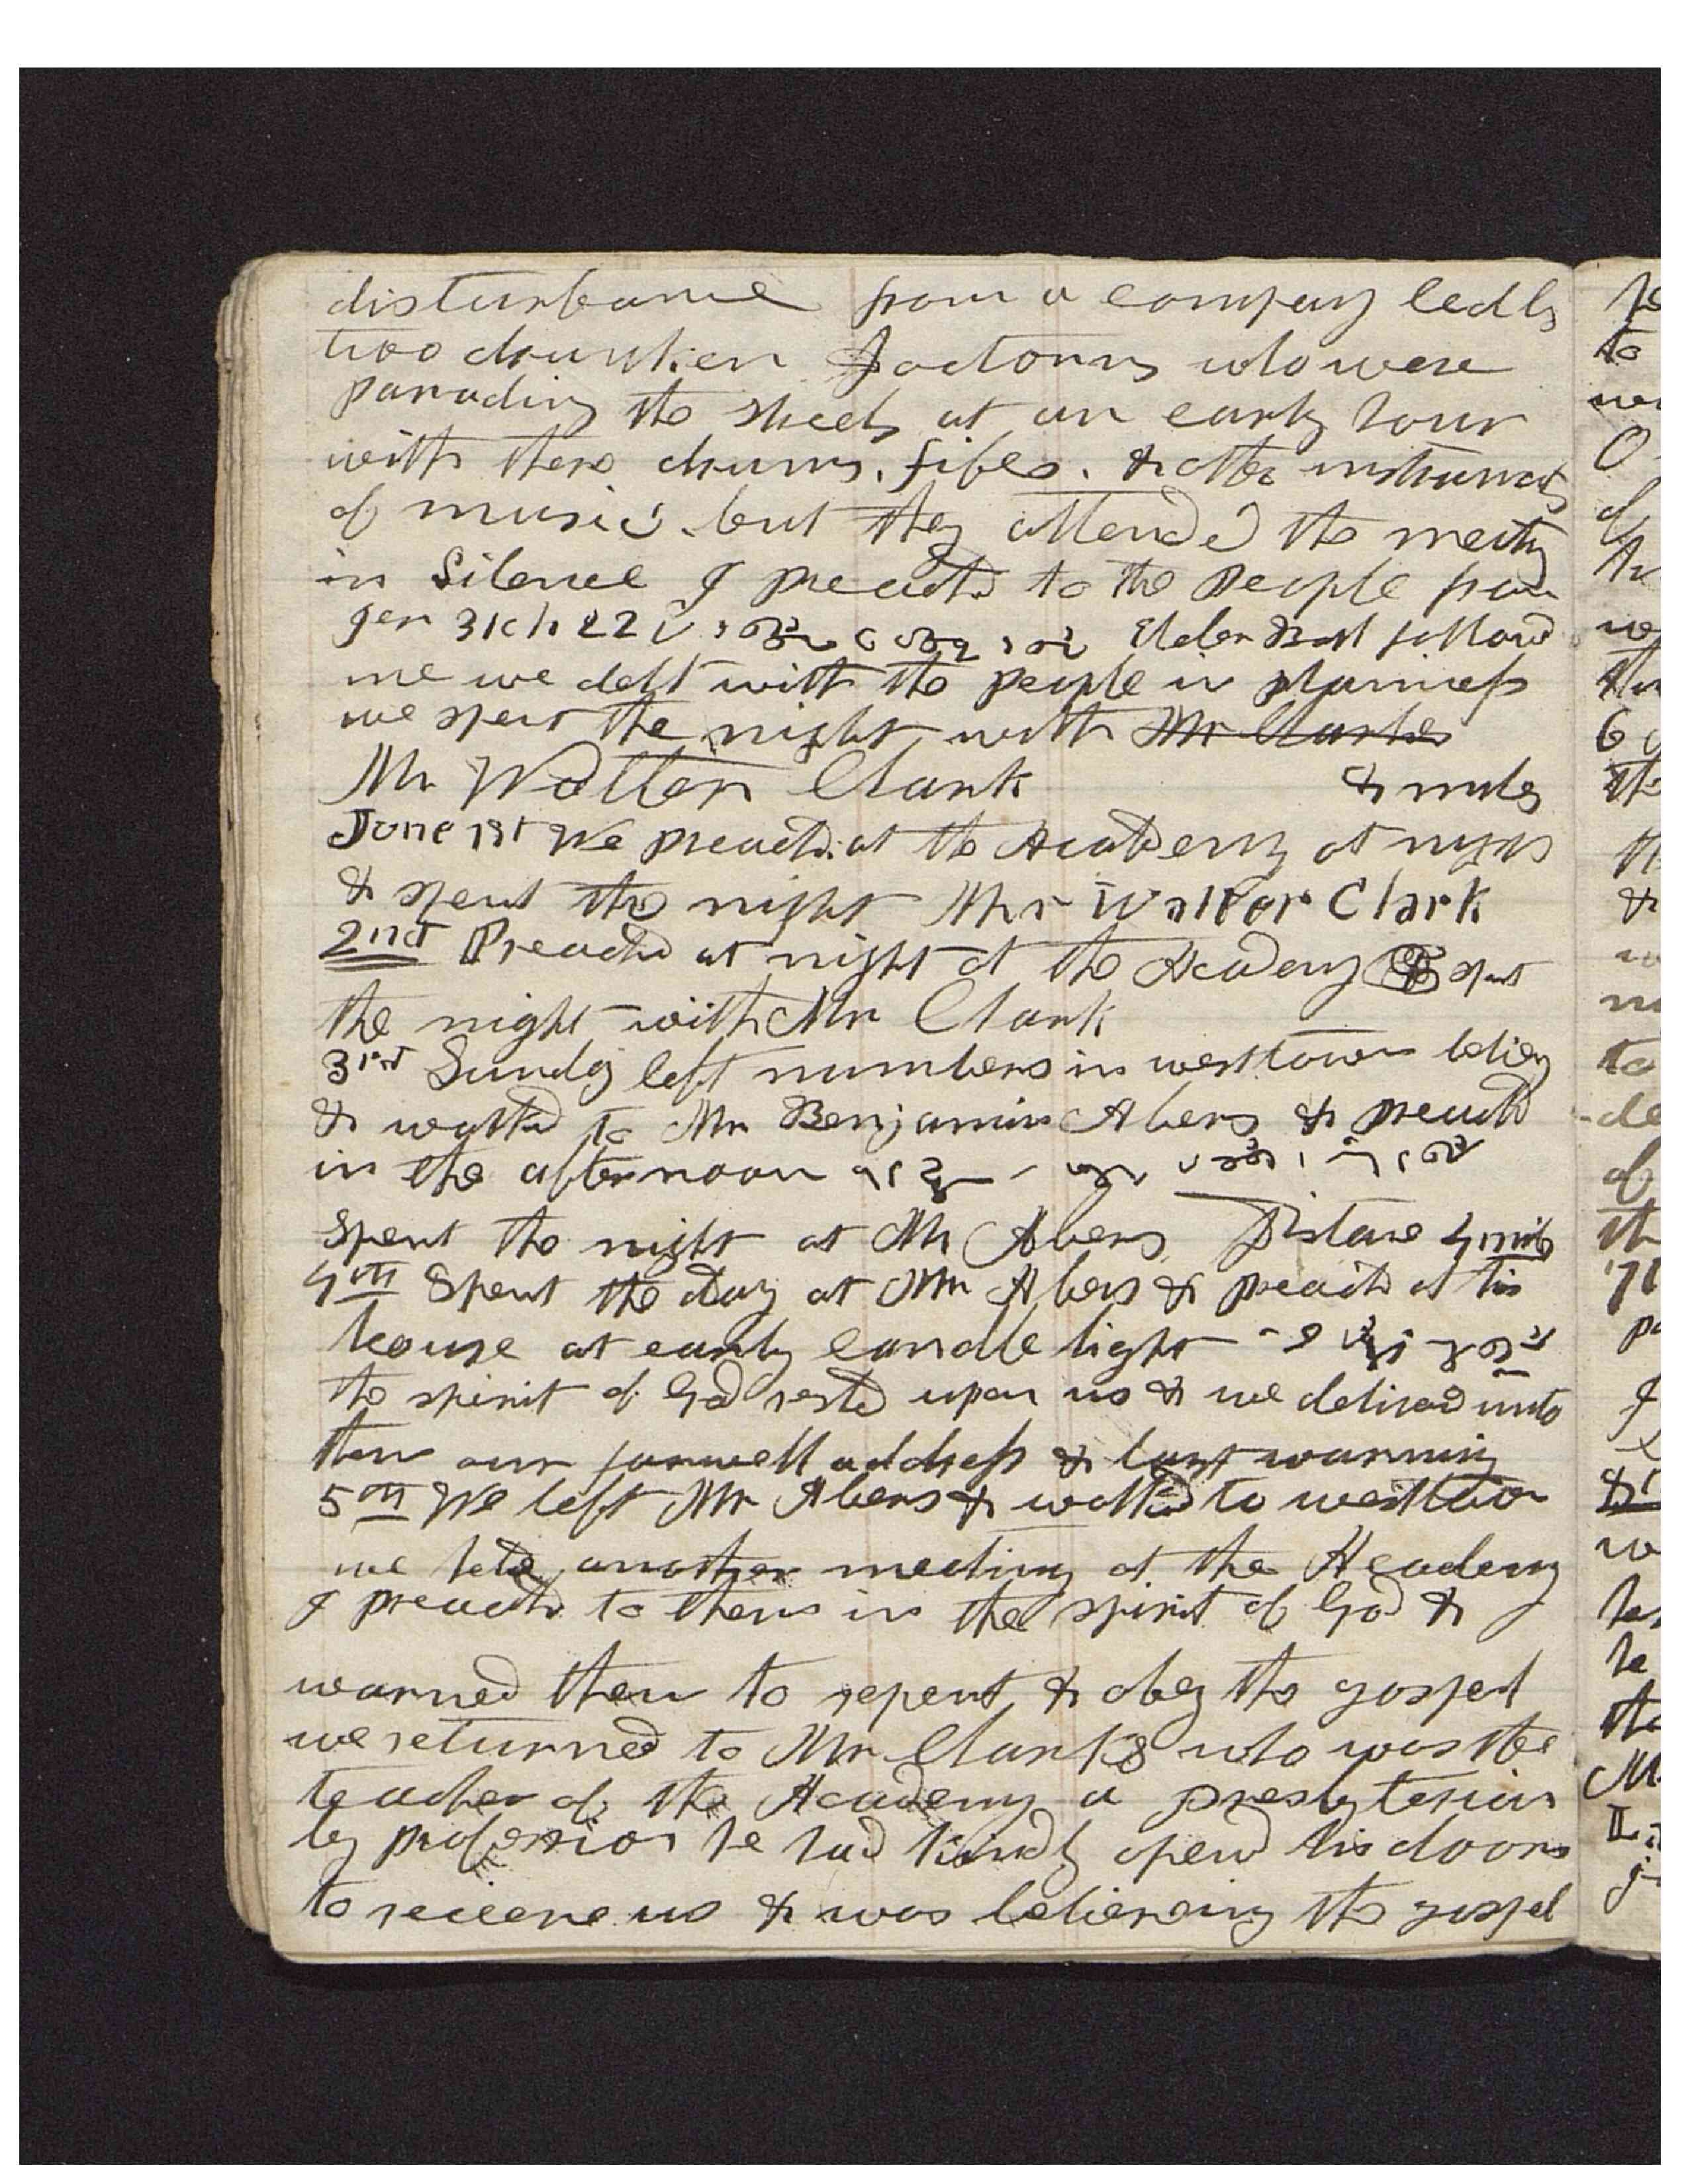 disturbance from a company led by
two drunken doctors who were
parading the streets at an early hour
with there drums, fifes, & other instruments
of music. but they attended the meeting
in Silence I preachd to the People from
Jer 31 ch 22 v Elder Ball followd
me we delt with the people in plainness
we spent the night with Mr Clarke
Mr Walter Clark miles
June 1st We preachd at the Academy at night
& spent the night Mr Walter Clark
2nd Preachd at night at the Academy & spent
the night with Mr Clark
3rd Sunday left numbers in westtown believing
& walked to Mr Benjamin Abers & preachd
in the afternoon
Spent the night at Mr Abers Distance 4 miles
4th Spent the day at Mr Abers & preachd at his
house at early candle light
the spirit of God rested upon us & we deliverd unto
them our farwell address & last warning
5th We left Mr Abers & walked to westtown
we held another meeting at the Academy
I preachd to them in the spirit of God &
warned them to repent & obey the gospel
we returned to Mr Clarks who was the
teacher of the Academy a presbyterian
by profession he had kindly opend his doors
to recieve us & was believeing the gospel